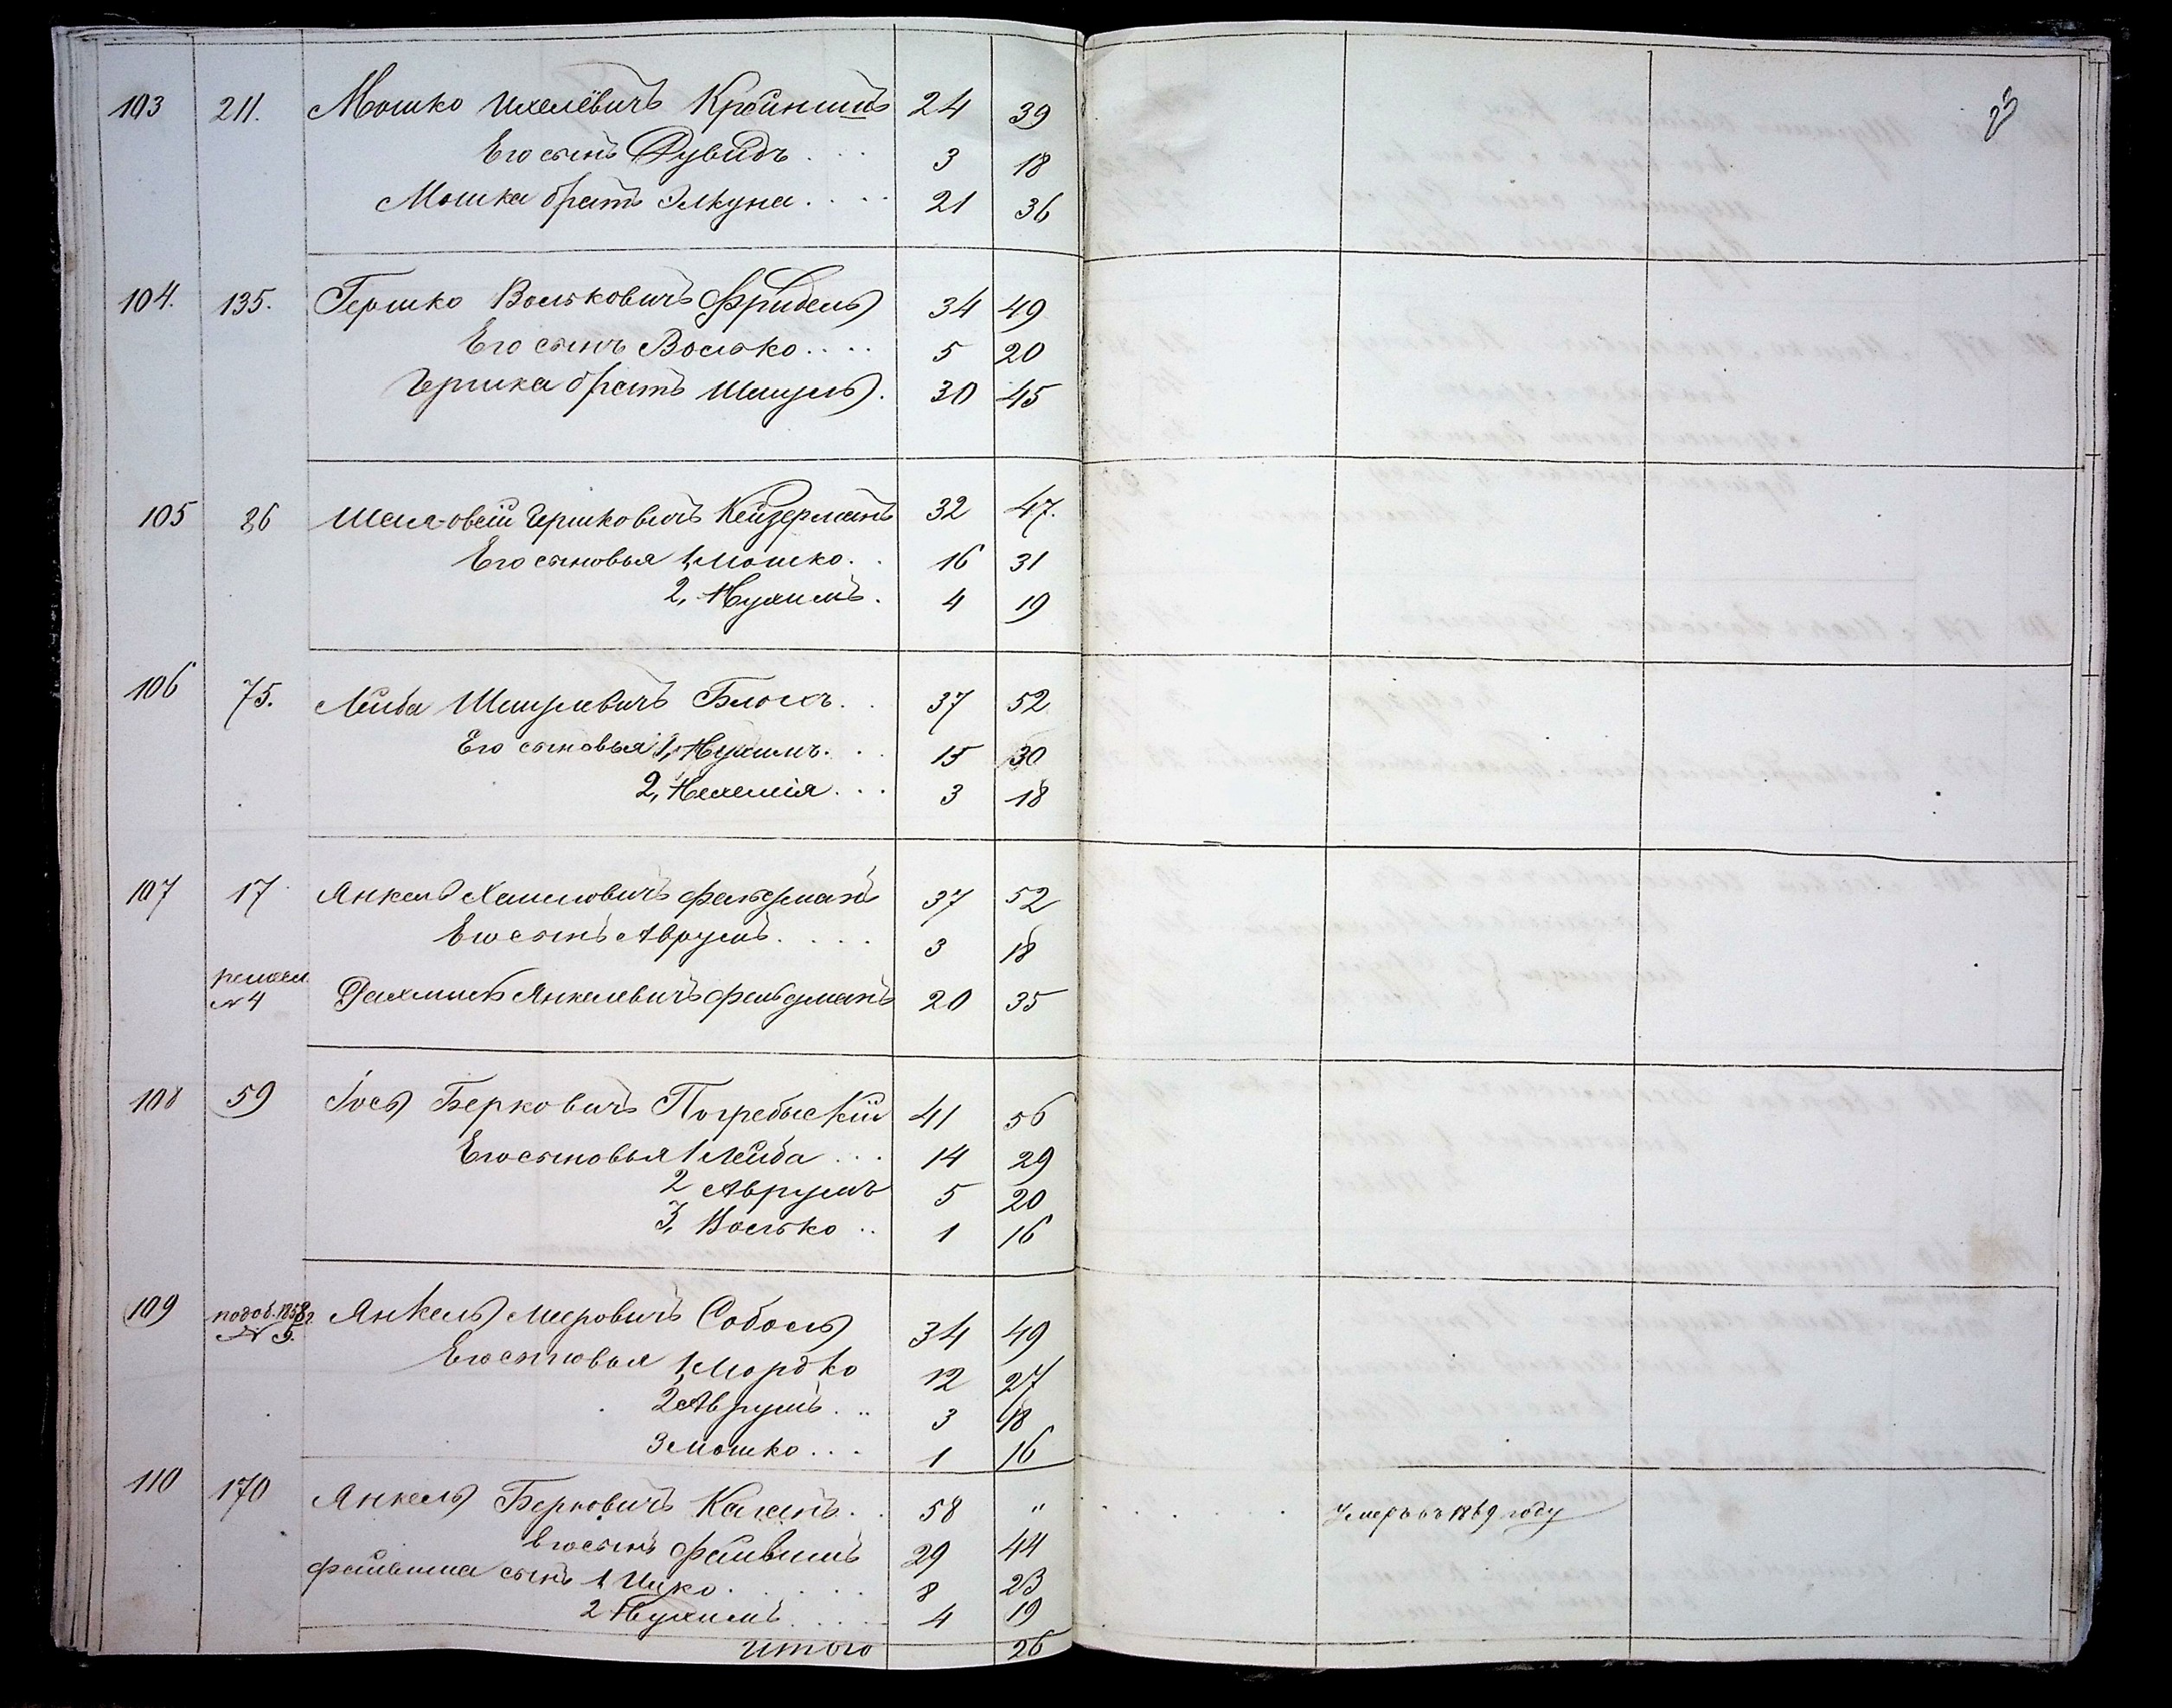 23
103 211. Мошко Ихелёвичъ Крейнинъ 24 39
Его сынъ Дувидъ . . . 3 18
Мошка братъ Элкуна . . . . 21 36
104. 135. Гершко Вольковичъ Фридель 34 49
Его сынъ Волько . . . . 5 20
Гершка братъ Шмуль . 30 45
105 86 Гершковичъ Кейзерманъ 32 47.
Его сыновья 1, Мошко . . 16 31
2, Нухимъ . 4 19
106 75. Лейба Шмулевичъ Блохъ . . 37 52
Его сыновья 1, Нухимъ . . 15 30
2, Нехемія . . . 3 18
107 17 Янкель Хаимовичъ Фельдманъ 37 52
Его сынъ Аврумъ . . . . 3 18
ремесл.
№ 4 Рахмиль Янкелевичъ Фельдманъ 20 35
108 59 Іось Берковичъ Погребыскій 41 56
Его сыновья 1 Лейба . . . 14 29
2 Аврумъ 5 20
3, Волько . . 1 16
109 по доб. 1858 г. Янкель Меровичъ Соболь 34 49
№ 9.
Его сыновья 1, Мордко 12 27
2 Аврумъ . . . 3 18
3 Мошко . . . 1 16
110 170 Янкель Берковичъ Каганъ . . 58 " . . . . . Умеръ въ 1869 году
Его сынъ Файвишъ 29 44
Файвиша сынъ 1, Ицко . . . . . 8 23
2 Нухимъ . . . . 4 19
Итого 26